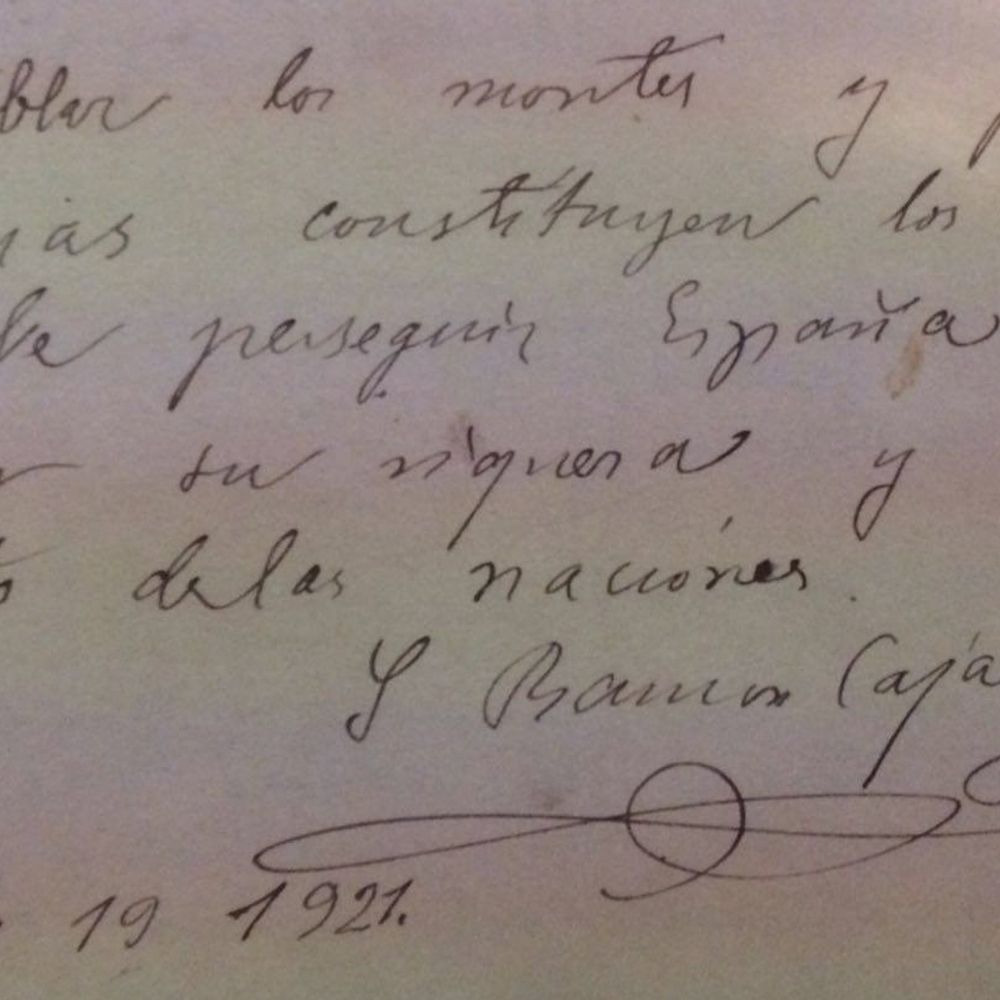 blar los montes y p
jas constituyen los
be perseguir España
r su riquesa y
o de las naciones.
S Ramon Caja
19 1921.